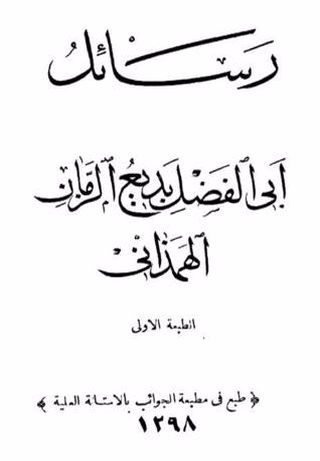 رسائل
أبى الفضل بديع الزمان
الهمذانى
الطبعة الاولى
﴿ طبع فى مطبعة الجوائب بالاستانة العلية ﴾
١٢٩٨